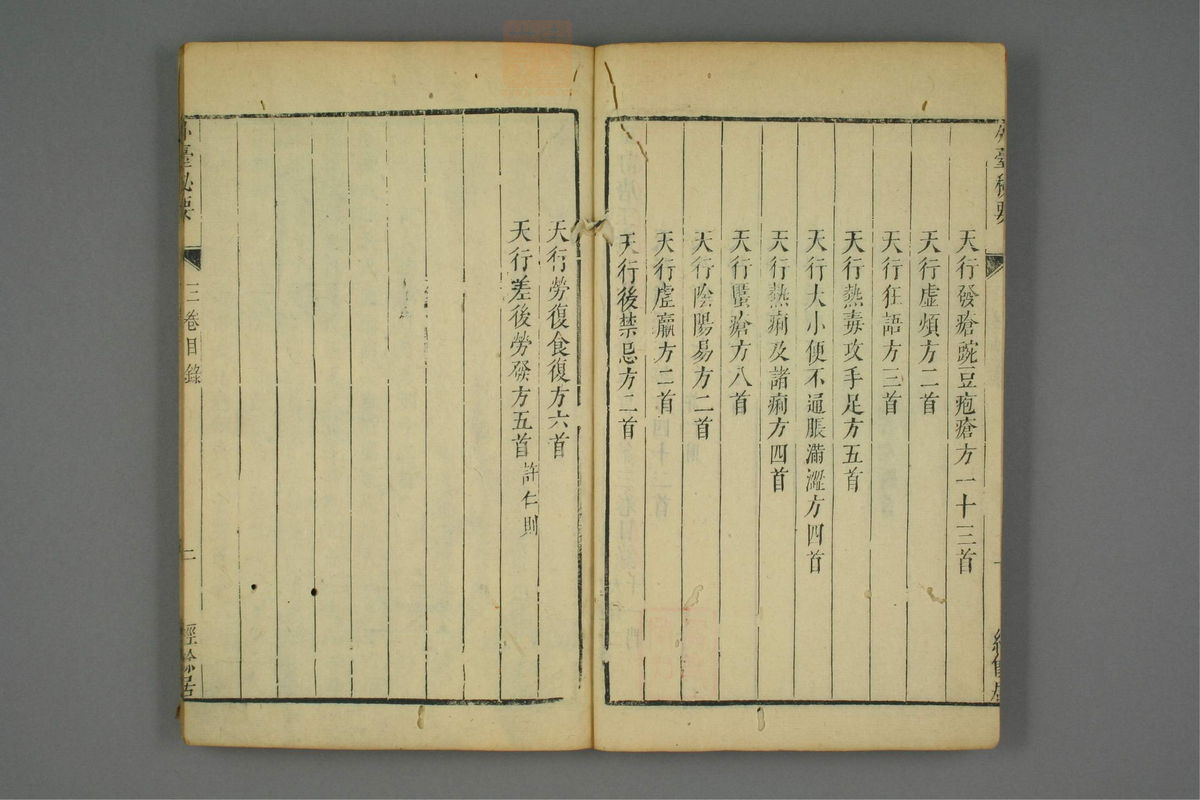 天行發瘡豌豆疱瘡方一十三首
天行虛煩方二首
天行狂語方三首
天行熱毒攻手足方五首
天行大小便不通脹滿澀方四首
天行熱痢及諸痢方四首
天行䘌瘡方八首
天行陰陽易方二首
天行虛羸方二首
天行後禁忌方二首
天行勞復食復方六首
天行差後勞發方五首許仁則
外臺秘要 三卷目錄 二 經餘居